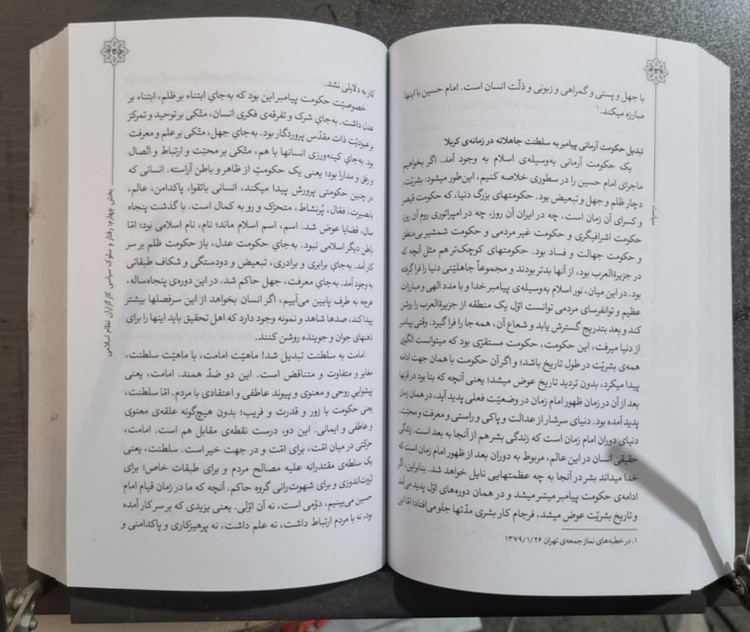 با جهل و پستی و گمراهی و زبونی و ذلّت انسان است. امام حسین با اینها
مبارزه میکند.۱
تبدیل حکومت آرمانی پیامبر به سلطنت جاهلانه در زمانه‌ی کربلا
یک حکومت آرمانی به‌وسیله‌ی اسلام به وجود آمد. اگر بخواهیم
ماجرای امام حسین را در سطوری خلاصه کنیم، این‌طور میشود: بشریّت،
دچار ظلم و جهل و تبعیض بود. حکومتهای بزرگ دنیا، که حکومت قیصر
و کسرای آن زمان است، چه در ایران آن روز، چه در امپراتوری روم آن روز،
حکومت اشرافیگری و حکومت غیر مردمی و حکومت شمشیر بی‌منطق
و حکومت جهالت و فساد بود. حکومتهای کوچک‌تر هم مثل آنچه که
در جزیرةالعرب بود، از آنها بدتر بودند و مجموعاً جاهلیّتی دنیا را فرا گرفته
بود. در این میان، نور اسلام به‌وسیله‌ی پیامبر خدا و با مدد الهی و مبارزات
عظیم و توانفرسای مردمی توانست اوّل یک منطقه از جزیرةالعرب را روشن
کند و بعد بتدریج گسترش یابد و شعاع آن، همه‌جا را فرا گیرد. وقتی پیامبر
از دنیا میرفت، این حکومت، حکومت مستقرّی بود که میتوانست الگوی
همه‌ی بشریّت در طول تاریخ باشد؛ و اگر آن حکومت با همان جهت ادامه
پیدا میکرد، بدون تردید تاریخ عوض میشد؛ یعنی آنچه که بنا بود در قرنها
بعد از آن در زمان ظهور امام زمان در وضعیّت فعلی پدید آید، در همان زمان
پدید آمده بود. دنیای سرشار از عدالت و پاکی و راستی و معرفت و محبّت،
دنیای دوران امام زمان است که زندگی بشر هم از آنجا به بعد است. زندگی
حقیقی انسان در این عالم، مربوط به دوران بعد از ظهور امام زمان است که
خدا میداند بشر در آنجا به چه عظمتهایی نایل خواهد شد. بنابراین، اگر
ادامه‌ی حکومت پیامبر میسّر میشد و در همان دوره‌های اوّل پدید می‌آمد
و تاریخ بشریّت عوض میشد، فرجام کار بشری مدّتها جلو می‌افتاد؛ امّا این
۱. در خطبه‌های نماز جمعه‌ی تهران ۱۳۷۹/۱/۲۶
کار به دلایلی نشد.
خصوصیّت حکومت پیامبر این بود که به‌جای ابتناء بر ظلم، ابتناء بر
عدل داشت. به‌جای شرک و تفرقه‌ی فکری انسان، متّکی بر توحید و تمرکز
بر عبودیّت ذات مقدّس پروردگار بود. به‌جای جهل، متّکی بر علم و معرفت
بود. به‌جای کینه‌ورزی انسانها با هم، متّکی بر محبّت و ارتباط و اتّصال
و رفق و مدارا بود؛ یعنی یک حکومتِ از ظاهر و باطن آراسته. انسانی که
در چنین حکومتی پرورش پیدا میکند، انسانی باتقوا، پاکدامن، عالِم،
بابصیرت، فعّال، پُرنشاط، متحرّک و رو به کمال است. با گذشت پنجاه
سال، قضایا عوض شد. اسم، اسم اسلام ماند؛ نام، نام اسلامی بود؛ امّا
باطن دیگر اسلامی نبود. به‌جای حکومت عدل، باز حکومت ظلم بر سر
کار آمد. به‌جای برابری و برادری، تبعیض و دودستگی و شکاف طبقاتی
به وجود آمد. به‌جای معرفت، جهل حاکم شد. در این دوره‌ی پنجاه‌ساله،
هرچه به طرف پایین می‌آییم، اگر انسان بخواهد از این سرفصلها بیشتر
پیدا کند، صدها شاهد و نمونه وجود دارد که اهل تحقیق باید اینها را برای
ذهنهای جوان و جوینده روشن کنند.
امامت به سلطنت تبدیل شد! ماهیّت امامت، با ماهیّت سلطنت،
مغایر و متفاوت و متناقض است. این دو ضدّ همند. امامت، یعنی
پیشوایی روحی و معنوی و پیوند عاطفی و اعتقادی با مردم. امّا سلطنت،
یعنی حکومت با زور و قدرت و فریب؛ بدون هیچ‌گونه علقه‌ی معنوی
و عاطفی و ایمانی. این دو، درست نقطه‌ی مقابل هم است. امامت،
حرکتی در میان امّت، برای امّت و در جهت خیر است. سلطنت، یعنی
یک سلطه‌ی مقتدرانه علیه مصالح مردم و برای طبقات خاص؛ برای
ثروت‌اندوزی و برای شهوت‌رانی گروه حاکم. آنچه که ما در زمان قیام امام
حسین می‌بینیم، دوّمی است، نه آن اوّلی. یعنی یزیدی که بر سر کار آمده
بود، نه با مردم ارتباط داشت، نه علم داشت، نه پرهیزکاری و پاکدامنی و
بخش چهارم: رفتار و سلوک سیاسی کارگزاران نظام اسلامی